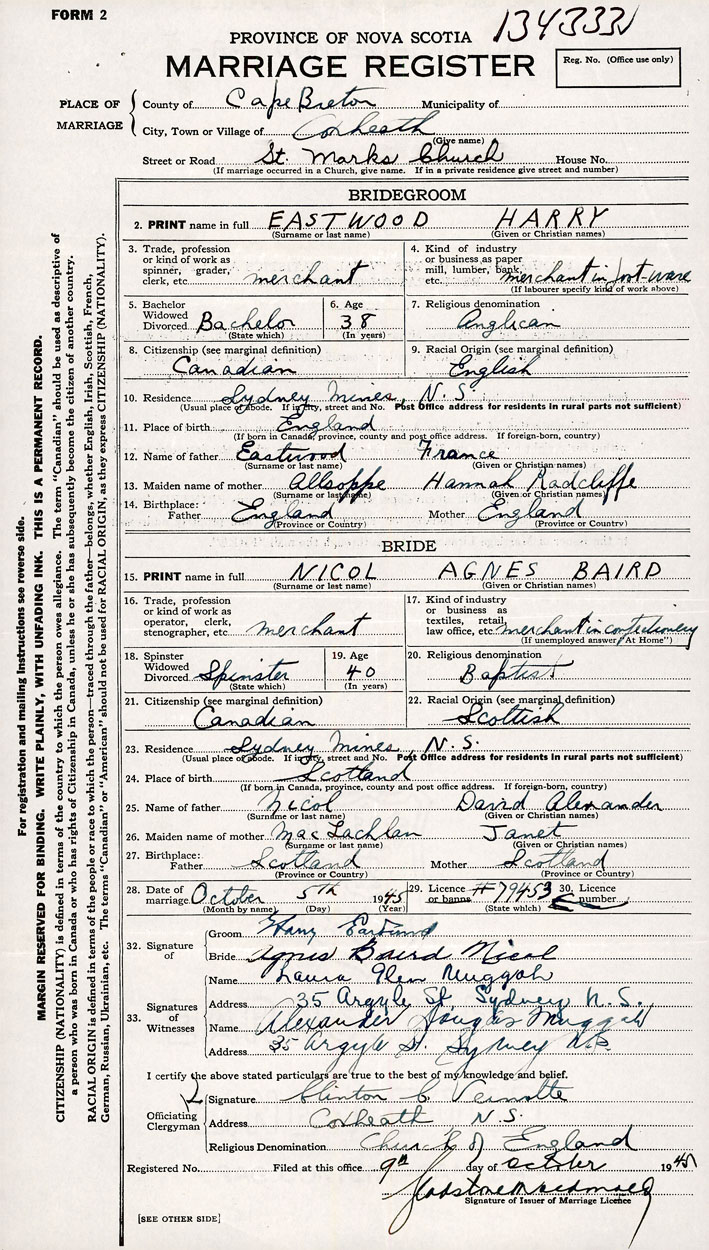 FORM 2
134333
PROVINCE OF NOVA SCOTIA
MARRIAGE REGISTER
Reg. No. (Office use only)
PLACE OF MARRIAGE
County of Cape Breton Municipality of
City, Town or Village of Coxheath
(Give name)
Street or Road St. Marks Church House No.
(If marriage occurred in a Church, give name. If in a private residence give street and number)
BRIDEGROOM
2. PRINT name in full EASTWOOD HARRY
(Surname or last name) (Given or Christian names)
3. Trade, profession or kind of work as spinner, grader, clerk, etc. merchant
4. Kind of industry or business as paper mill, lumber, bank, etc. merchant in foot-ware
(If labourer specify kind of work above)
5. Bachelor Widowed Divorced Bachelor
(State which)
6. Age 38
(In years)
7. Religious denomination
Anglican
8. Citizenship (see marginal definition)
Canadian
9. Racial Origin (see marginal definition)
English
10. Residence Sydney Mines, N.S.
(Usual place of abode. If in city, street and No. Post Office address for residents in rural parts not sufficient)
11. Place of birth England
(If born in Canada, province, county and post office address. If foreign-born, country)
12. Name of father Eastwood France
(Surname or last name) (Given or Christian names)
13. Maiden name of mother Allsoppe Hannah Radcliffe
(Surname or last name) (Given or Christian names)
14. Birthplace: Father England Mother England
(Province or Country) (Province or Country)
BRIDE
15. PRINT name in full NICOL AGNES BAIRD
(Surname or last name) (Given or Christian names)
16. Trade, profession or kind of work as operator, clerk, stenographer, etc. merchant
17. Kind of industry or business as textiles, retail, law office, etc. merchant in confectionery
(If unemployed answer "At Home")
18. Spinster Widowed Divorced Spinster
(State which)
19. Age 40
(In years)
20. Religious denomination
Baptist
21. Citizenship (see marginal definition)
Canadian
22. Racial Origin (see marginal definition)
Scottish
23. Residence Sydney Mines, N.S.
(Usual place of abode. If in city, street and No. Post Office address for residents in rural parts not sufficient)
24. Place of birth Scotland
(If born in Canada, province, county and post office address. If foreign-born, country)
25. Name of father Nicol David Alexander
(Surname or last name) (Given or Christian names)
26. Maiden name of mother MacLachlan Janet
(Surname or last name) (Given or Christian names)
27. Birthplace: Father Scotland Mother Scotland
(Province or Country) (Province or Country)
28. Date of marriage October 5th 1945
(Month by name) (Day) (Year)
29. Licence or banns #79453
(State which)
30. Licence number
32. Signature of
Groom Harry Eastwood
Bride Agnes Baird Nicol
33. Signatures of Witnesses
Name Laura Glen Muggah
Address 35 Argyle St. Sydney N.S.
Name Alexander Dougas Muggah
Address 35 Argyle St. Sydney N.S.
I certify the above stated particulars are true to the best of my knowledge and belief.
Officiating Clergyman
Signature Clinton C.
Address Coxheath N.S.
Religious Denomination Church of England
Registered No. Filed at this office 9th day of October 1945
Signature of Issuer of Marriage Licence
[SEE OTHER SIDE]
For registration and mailing instructions see reverse side.
MARGIN RESERVED FOR BINDING. WRITE PLAINLY, WITH UNFADING INK. THIS IS A PERMANENT RECORD.
CITIZENSHIP (NATIONALITY) is defined in terms of the country to which the person owes allegiance. The term "Canadian" should be used as descriptive of
a person who was born in Canada or who has rights of Citizenship in Canada, unless he or she has subsequently become the citizen of another country.
RACIAL ORIGIN is defined in terms of the people or race to which the person—traced through the father—belongs, whether English, Irish, Scottish, French,
German, Russian, Ukrainian, etc. The terms "Canadian" or "American" should not be used for RACIAL ORIGIN, as they express CITIZENSHIP (NATIONALITY).